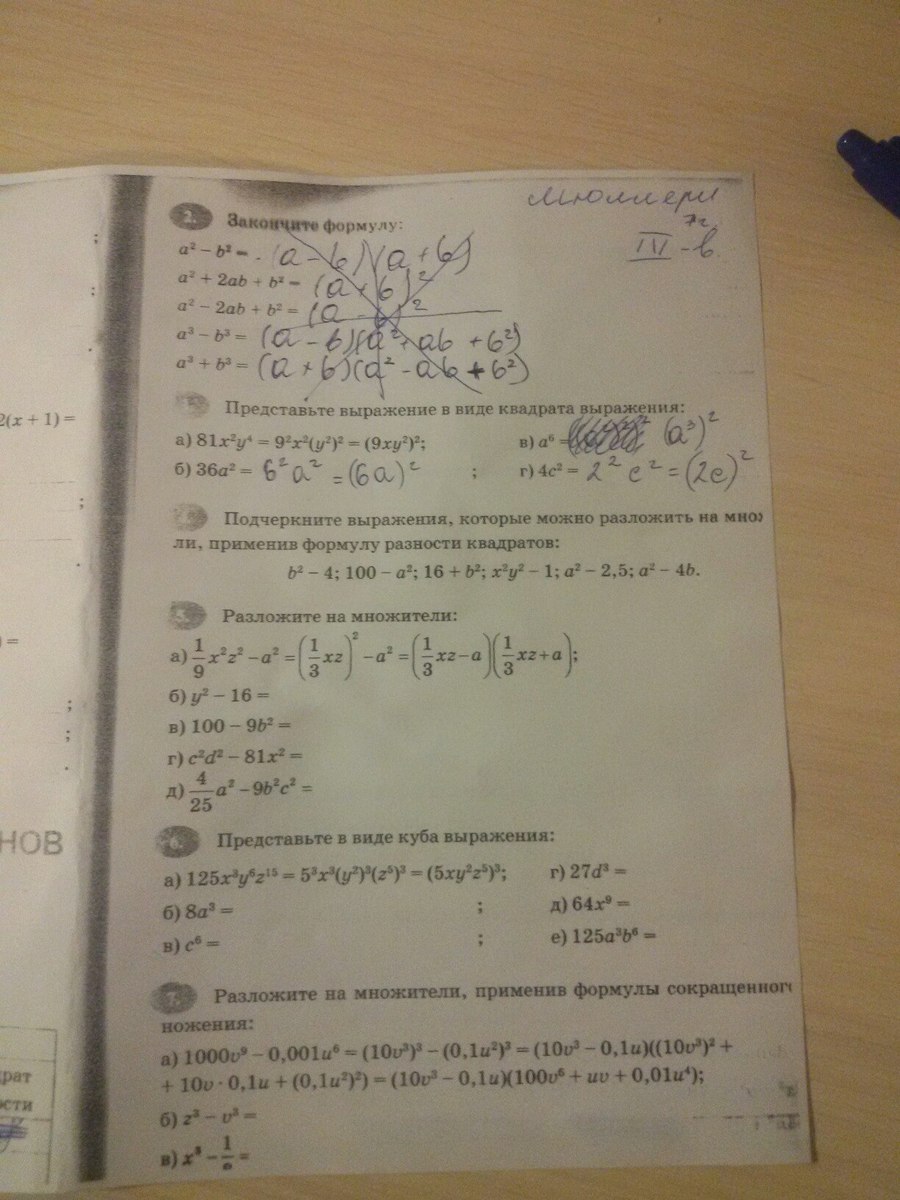 Мюллери
7г.
III - в.
2. Закончите формулу:
a² − b² = (a − b)(a + b)
a² + 2ab + b² = (a + b)²
a² − 2ab + b² = (a − b)²
a³ − b³ = (a − b)(a² + ab + b²)
a³ + b³ = (a + b)(a² − ab + b²)
Представьте выражение в виде квадрата выражения:
а) 81x²y⁴ = 9²x²(y²)² = (9xy²)²; в) a⁶ = (a³)²
б) 36a² = 6²a² = (6a)² ; г) 4c² = 2²c² = (2c)²
Подчеркните выражения, которые можно разложить на мно
ли, применив формулу разности квадратов:
b² − 4; 100 − a²; 16 + b²; x²y² − 1; a² − 2,5; a² − 4b.
5. Разложите на множители:
а) 1/9 x²z² − a² = (1/3 xz)² − a² = (1/3 xz − a)(1/3 xz + a);
б) y² − 16 =
в) 100 − 9b² =
г) c²d² − 81x² =
д) 4/25 a² − 9b²c² =
6. Представьте в виде куба выражения:
а) 125x³y⁶z¹⁵ = 5³x³(y²)³(z⁵)³ = (5xy²z⁵)³; г) 27d³ =
б) 8a³ = ; д) 64x⁹ =
в) c⁶ = ; е) 125a³b⁶ =
7. Разложите на множители, применив формулы сокращенног
ножения:
а) 1000v⁹ − 0,001u⁶ = (10v³)³ − (0,1u²)³ = (10v³ − 0,1u)((10v³)² +
+ 10v · 0,1u + (0,1u²)²) = (10v³ − 0,1u)(100v⁶ + uv + 0,01u⁴);
б) z³ − v³ =
в) x³ − 1/8 =
2(x + 1) =
;
;
.
;
.
) =
;
;
.
НОВ
драт
ости